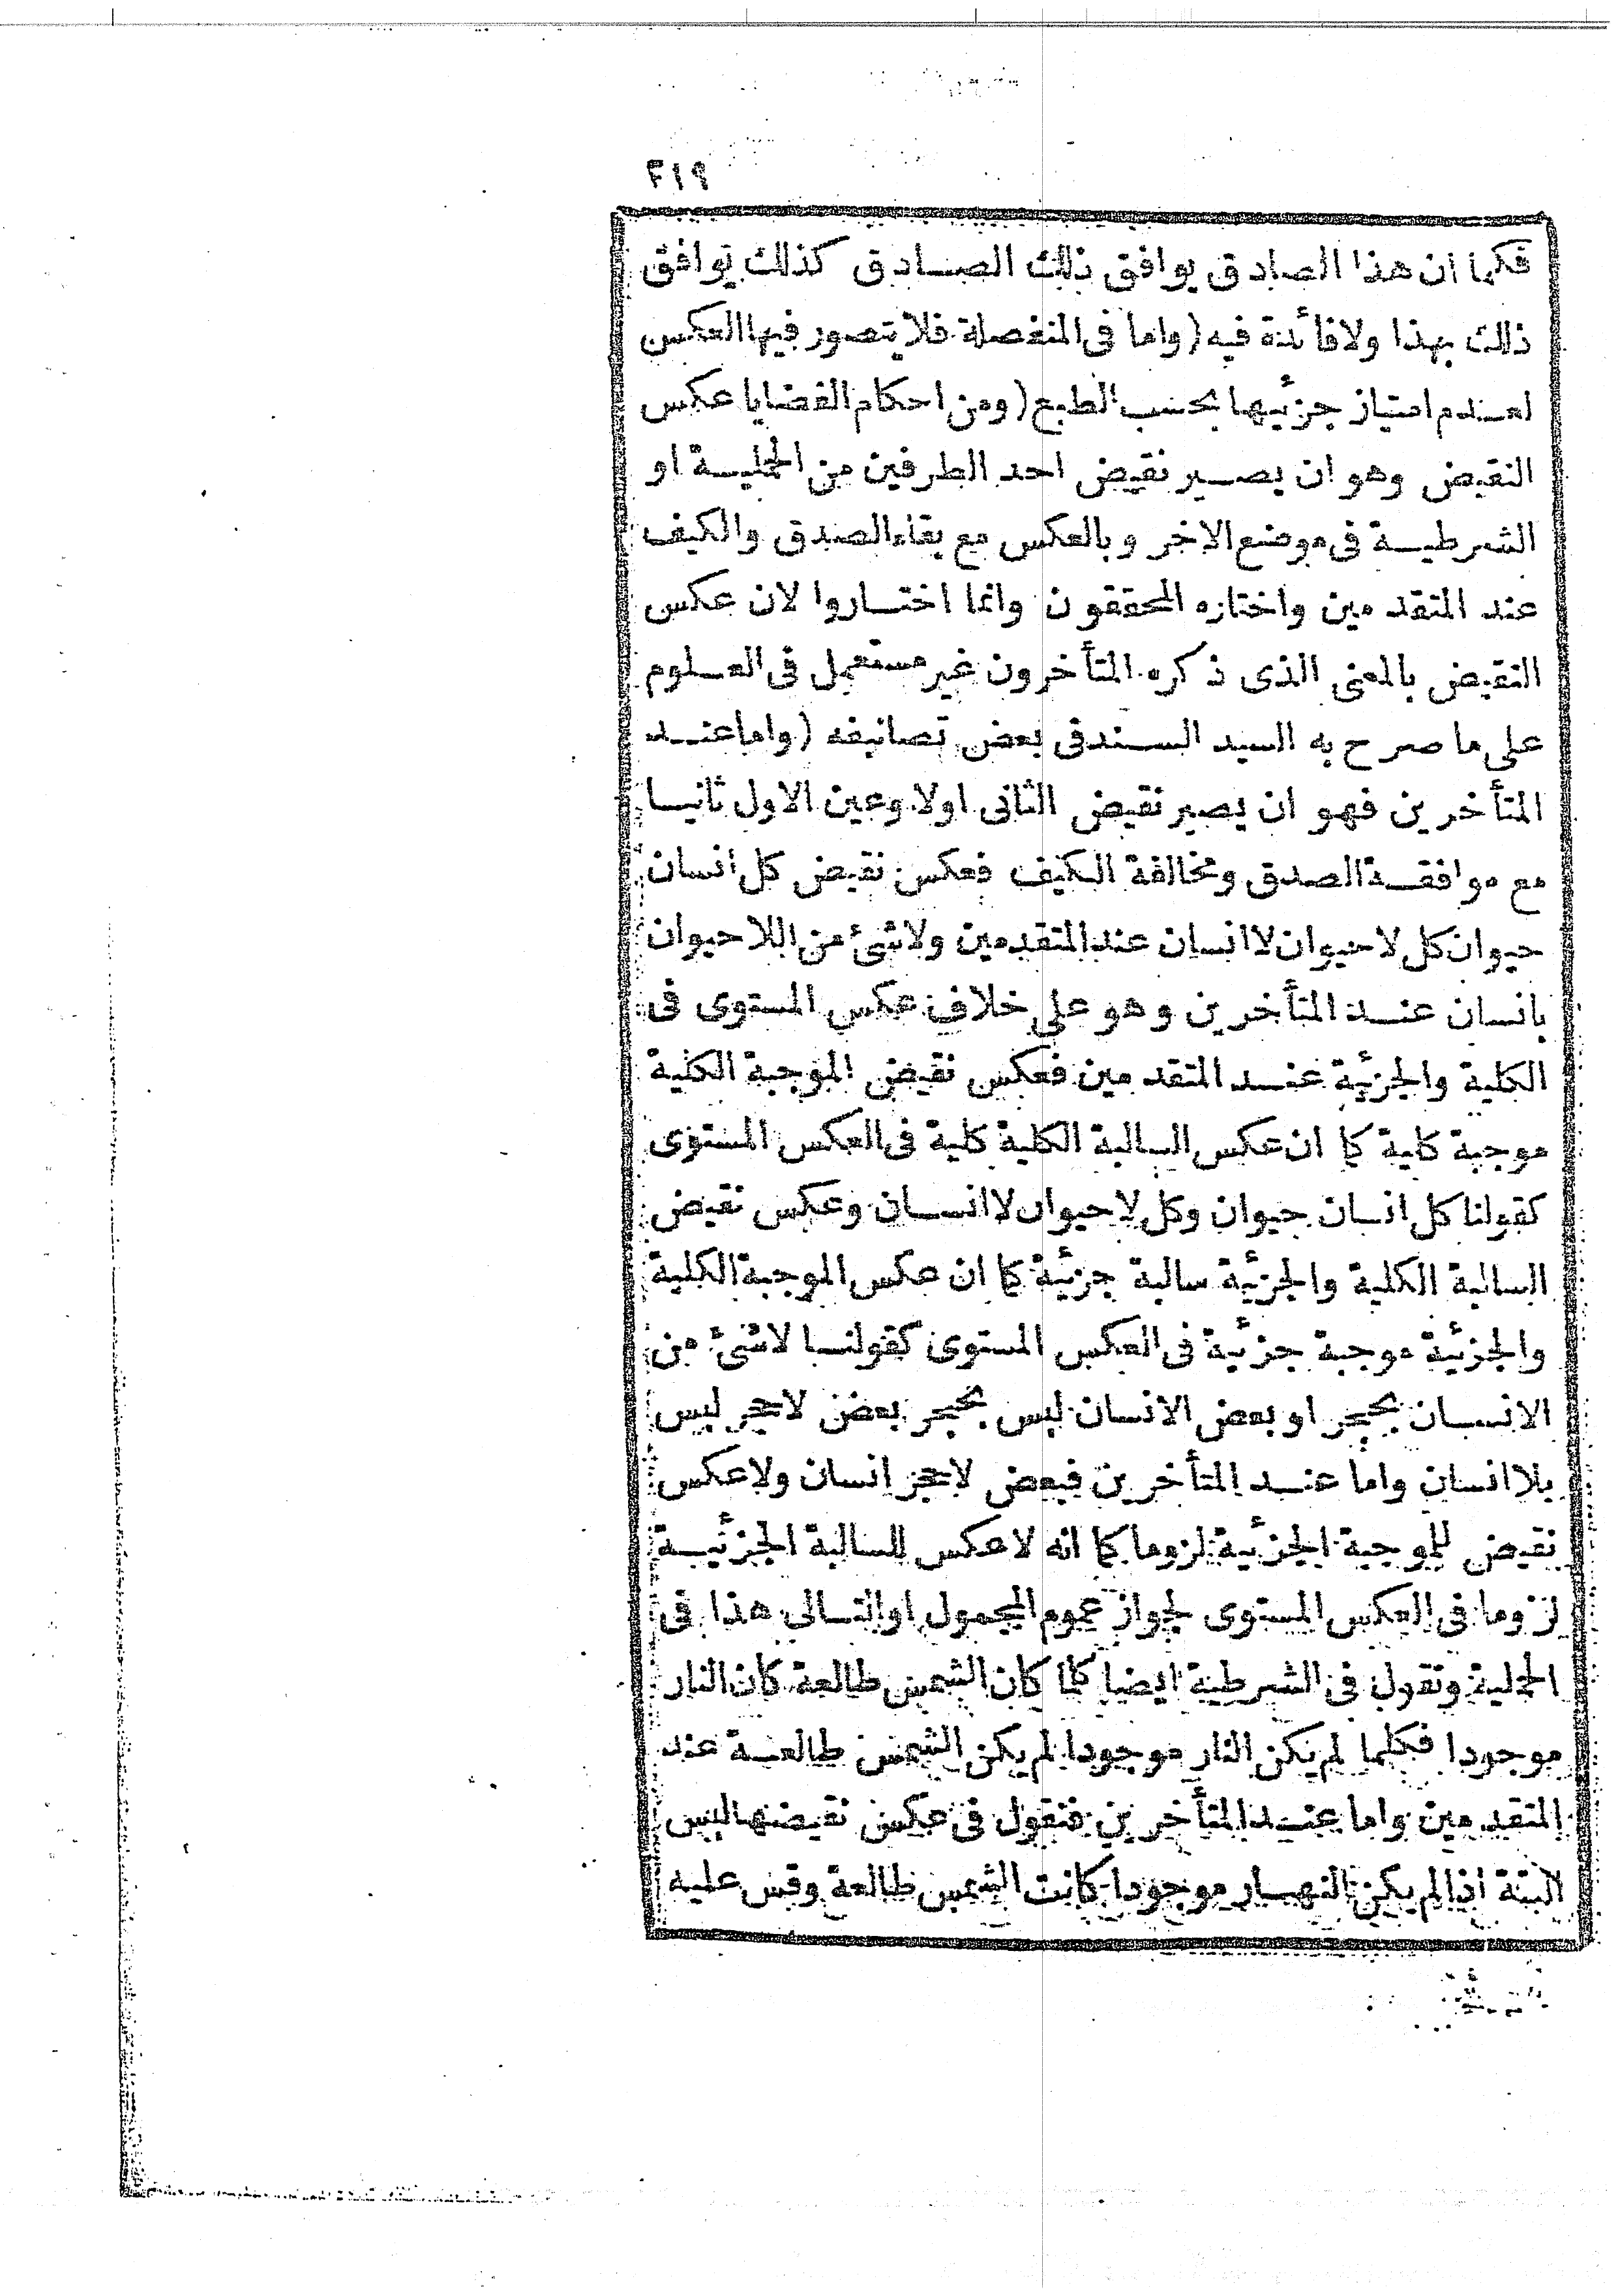 ٢١٩
فكما ان هذا الصادق يوافق ذلك الصادق كذلك يوافق
ذلك بهذا ولا فائدة فيه (واما فى المنفصلة فلا يتصور فيها العكس
لعدم امتياز جزئيها بحسب الطبع (ومن احكام القضايا عكس
النقيض وهو ان يصير نقيض احد الطرفين من الحملية او
الشرطية فى موضع الاخر وبالعكس مع بقاء الصدق والكيف
عند المتقدمين واختاره المحققون وانما اختاروا لان عكس
النقيض بالمعنى الذى ذكره المتأخرون غير مستعمل فى العلوم
على ما صرح به السيد السند فى بعض تصانيفه (واما عند
المتأخرين فهو ان يصير نقيض الثانى اولا وعين الاول ثانيا
مع موافقة الصدق ومخالفة الكيف فعكس نقيض كل انسان
حيوان كل لا حيوان لا انسان عند المتقدمين ولا شئ من اللا حيوان
بانسان عند المتأخرين وهو على خلاف عكس المستوى فى
الكلية والجزئية عند المتقدمين فعكس نقيض الموجبة الكلية
موجبة كلية كما ان عكس السالبة الكلية كلية فى العكس المستوى
كقولنا كل انسان حيوان وكل لا حيوان لا انسان وعكس نقيض
السالبة الكلية والجزئية سالبة جزئية كما ان عكس الموجبة الكلية
والجزئية موجبة جزئية فى العكس المستوى كقولنا لا شئ من
الانسان بحجر او بعض الانسان ليس بحجر بعض لا حجر ليس
بلا انسان واما عند المتأخرين فبعض لا حجر انسان ولا عكس
نقيض للموجبة الجزئية لزوما كما انه لا عكس للسالبة الجزئية
لزوما فى العكس المستوى لجواز عموم المحمول او التالى هذا فى
الحملية ونقول فى الشرطية ايضا كلما كان الشمس طالعة كان النار
موجودا فكلما لم يكن النار موجودا لم يكن الشمس طالعة عند
المتقدمين واما عند المتأخرين فنقول فى عكس نقيضها ليس
البتة اذا لم يكن النهار موجودا كانت الشمس طالعة وقس عليه